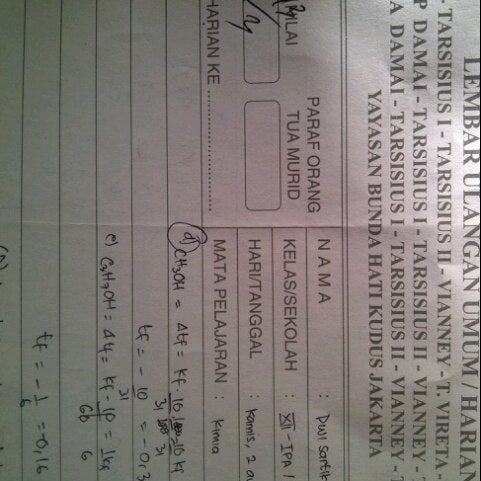 LEMBAR ULANGAN UMUM / HARIAN
- TARSISIUS I - TARSISIUS II - VIANNEY - T. VIRETA -
P DAMAI - TARSISIUS I - TARSISIUS II - VIANNEY -
A DAMAI - TARSISIUS I - TARSISIUS II - VIANNEY -
YAYASAN BUNDA HATI KUDUS JAKARTA
NILAI
PARAF ORANG TUA MURID
NAMA : Dwi Sartik
KELAS/SEKOLAH : XII - IPA /
HARI/TANGGAL : Kamis, 2
HARIAN KE
MATA PELAJARAN : Kimia
d) CH3OH = Δtf = Kf . 10
tf = - 10/31 = -0,3
e) C3H7OH = Δtf = Kf . 10/60 = 1 Kf/6
tf = - 1/6 = 0,16